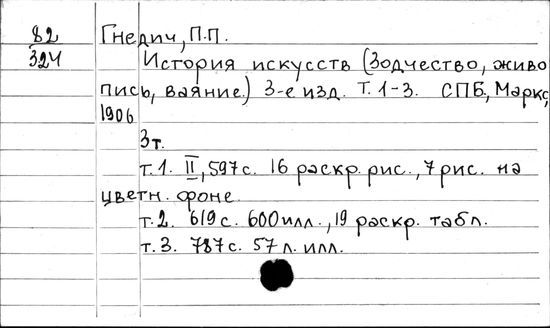 82 Гнедич, П.П.
324 История искусств (Зодчество, живо
пись, ваяние.) 3-е изд. Т. 1-3. СПБ., Маркс,
1906
3т.
т.1. II, 597с. 16 раскр. рис., 7 рис. на
цветн. фоне.
т.2. 619с. 600илл., 19 раскр. табл.
т.3. 787с. 57 л. илл.